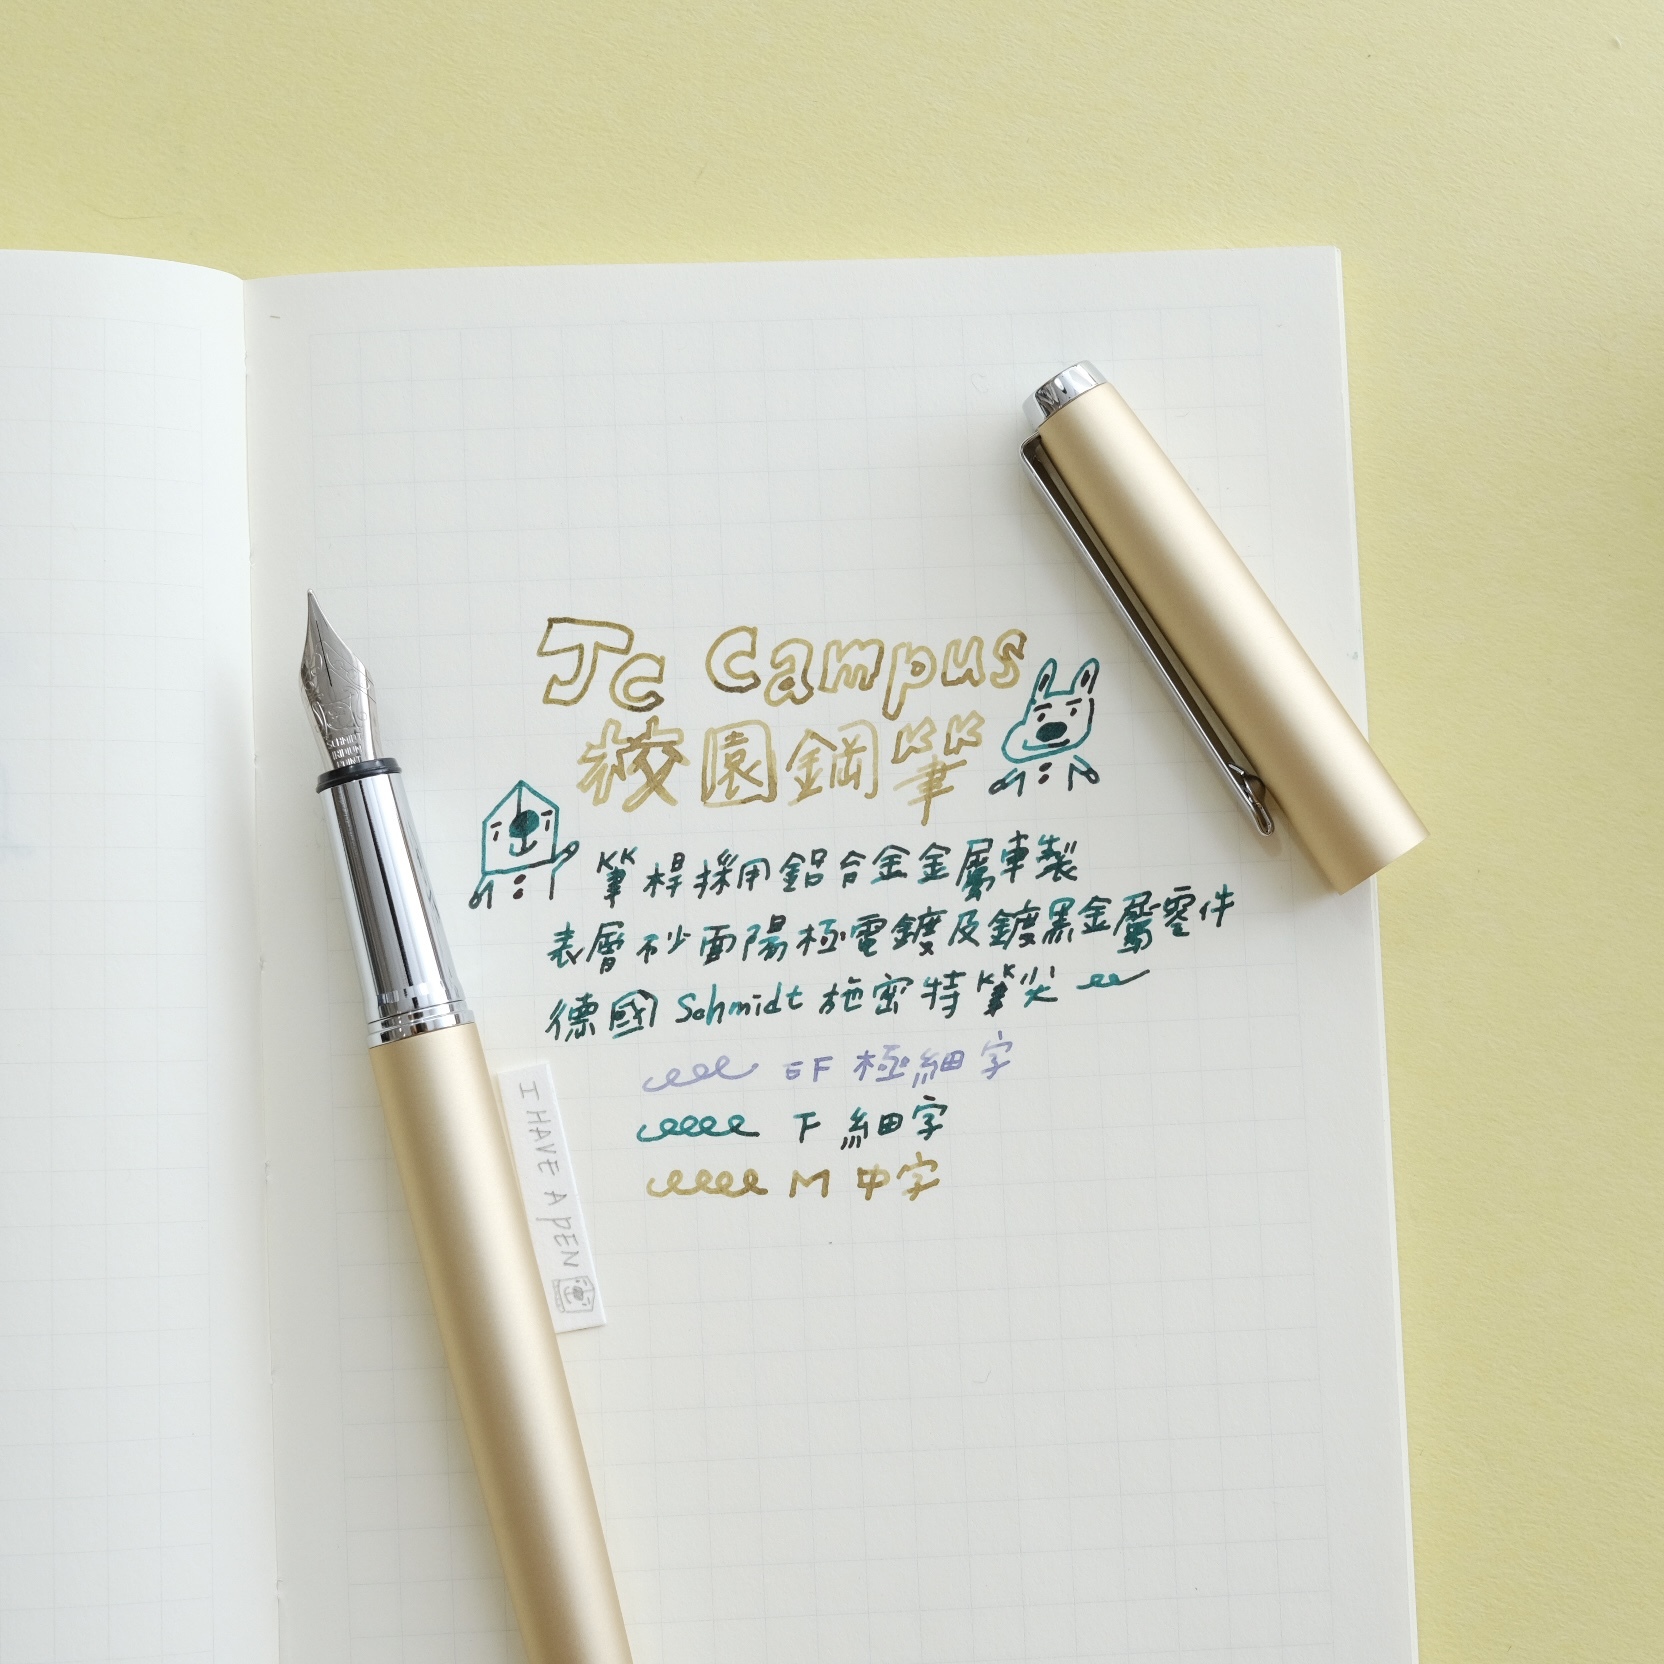 Jc Campus
校園鋼筆
筆桿採用鋁合金金屬車製
表層砂面陽極電鍍及鍍黑金屬零件
德國 Schmidt 施密特筆尖
EF 極細字
F 細字
M 中字
I HAVE A PEN
SCHMIDT
IRIDIUM
POINT